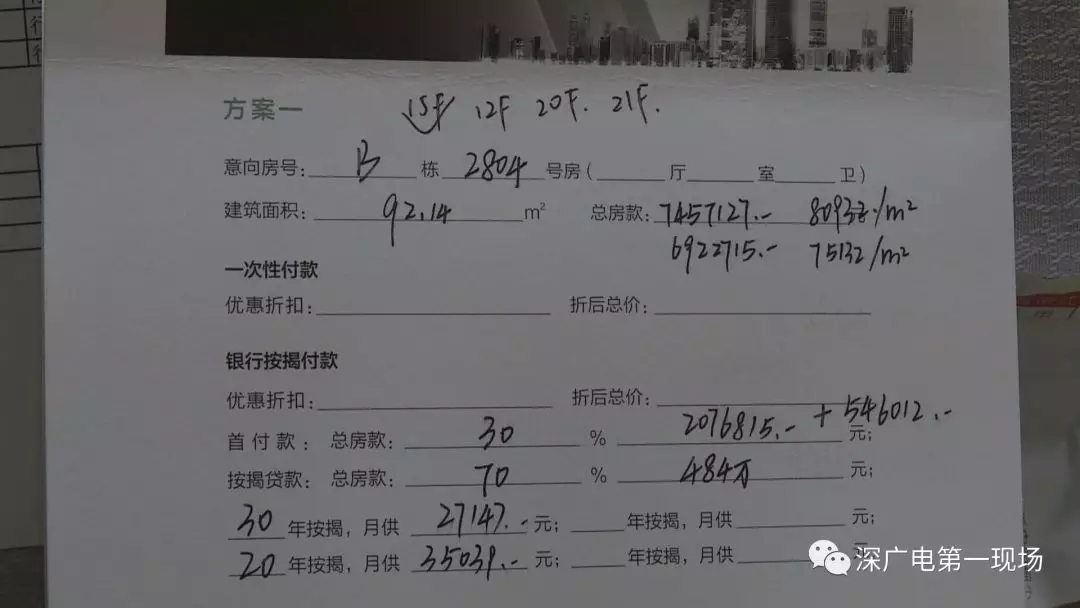 方案一 15F 12F 20F. 21F.
意向房号: B 栋 2804 号房( 厅 室 卫)
建筑面积: 92.14 m² 总房款: 7457127.- /m²
6922715.- 75132/m²
一次性付款
优惠折扣: 折后总价:
银行按揭付款
优惠折扣: 折后总价:
首付款: 总房款: 30 % 2076815.- + 546012.- 元;
按揭贷款: 总房款: 70 % 484万 元;
30 年按揭,月供 27147.- 元; 年按揭,月供 元;
20 年按揭,月供 35039.- 元; 年按揭,月供 元
深广电第一现场